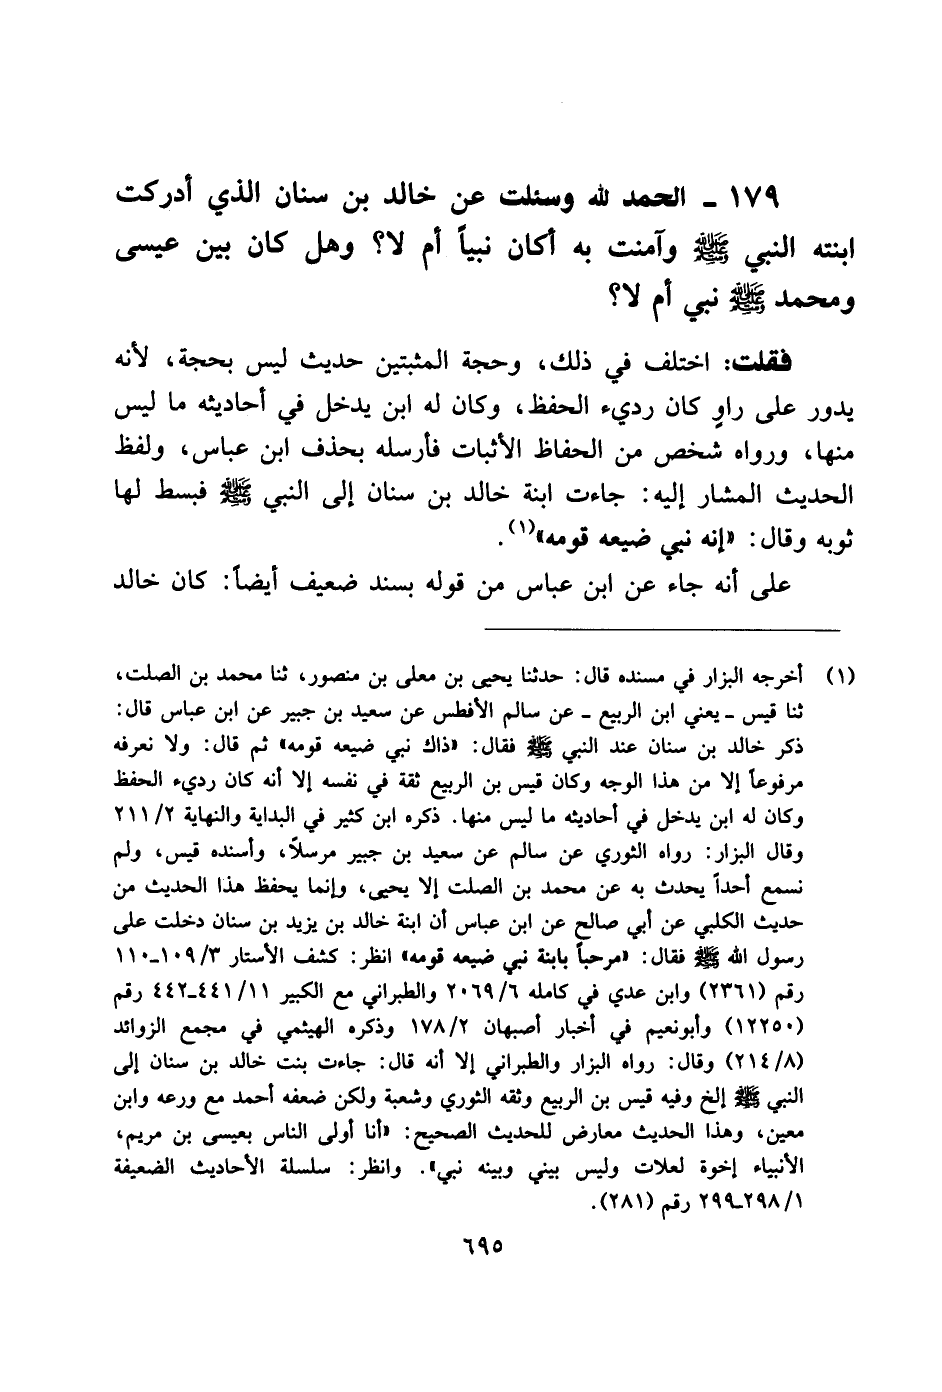 ١٧٩ ـ الحمد لله وسئلت عن خالد بن سنان الذي أدركت
ابنته النبي ﷺ وآمنت به أكان نبياً أم لا؟ وهل كان بين عيسى
ومحمد ﷺ نبي أم لا؟
فقلت: اختلف في ذلك، وحجة المثبتين حديث ليس بحجة، لأنه
يدور على راوٍ كان رديء الحفظ، وكان له ابن يدخل في أحاديثه ما ليس
منها، ورواه شخص من الحفاظ الأثبات فأرسله بحذف ابن عباس، ولفظ
الحديث المشار إليه: جاءت ابنة خالد بن سنان إلى النبي ﷺ فبسط لها
ثوبه وقال: «إنه نبي ضيعه قومه»(١).
على أنه جاء عن ابن عباس من قوله بسند ضعيف أيضاً: كان خالد
(١) أخرجه البزار في مسنده قال: حدثنا يحيى بن معلى بن منصور، ثنا محمد بن الصلت،
ثنا قيس ـ يعني ابن الربيع ـ عن سالم الأفطس عن سعيد بن جبير عن ابن عباس قال:
ذكر خالد بن سنان عند النبي ﷺ فقال: «ذاك نبي ضيعه قومه» ثم قال: ولا نعرفه
مرفوعاً إلا من هذا الوجه وكان قيس بن الربيع ثقة في نفسه إلا أنه كان رديء الحفظ
وكان له ابن يدخل في أحاديثه ما ليس منها. ذكره ابن كثير في البداية والنهاية ٢١١/٢
وقال البزار: رواه الثوري عن سالم عن سعيد بن جبير مرسلاً، وأسنده قيس، ولم
نسمع أحداً يحدث به عن محمد بن الصلت إلا يحيى، وإنما يحفظ هذا الحديث من
حديث الكلبي عن أبي صالح عن ابن عباس أن ابنة خالد بن يزيد بن سنان دخلت على
رسول الله ﷺ فقال: «مرحباً بابنة نبي ضيعه قومه» انظر: كشف الأستار ١٠٩/٣ـ١١٠
رقم (٢٣٦١) وابن عدي في كامله ٢٠٦٩/٦ والطبراني مع الكبير ٤٤١/١١ـ٤٤٢ رقم
(١٢٢٥٠) وأبونعيم في أخبار أصبهان ١٧٨/٢ وذكره الهيثمي في مجمع الزوائد
(٢١٤/٨) وقال: رواه البزار والطبراني إلا أنه قال: جاءت بنت خالد بن سنان إلى
النبي ﷺ إلخ وفيه قيس بن الربيع وثقه الثوري وشعبة ولكن ضعفه أحمد مع ورعه وابن
معين، وهذا الحديث معارض للحديث الصحيح: «أنا أولى الناس بعيسى بن مريم،
الأنبياء إخوة لعلات وليس بيني وبينه نبي». وانظر: سلسلة الأحاديث الضعيفة
٢٩٨/١ـ٢٩٩ رقم (٢٨١).
٦٩٥